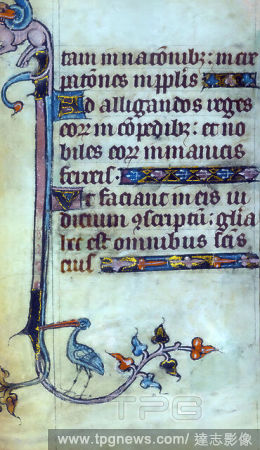 tam in nationibz: incre
pationes in pplis
Ad alligandos reges
eorr in copedibz: et no
biles eorr in manicis
ferreis.
Vt faciant in eis iu
dicium 9scriptū: glia
hec est omnibus scīs
eius
TPG
www.tpgnews.com/ 達志影像